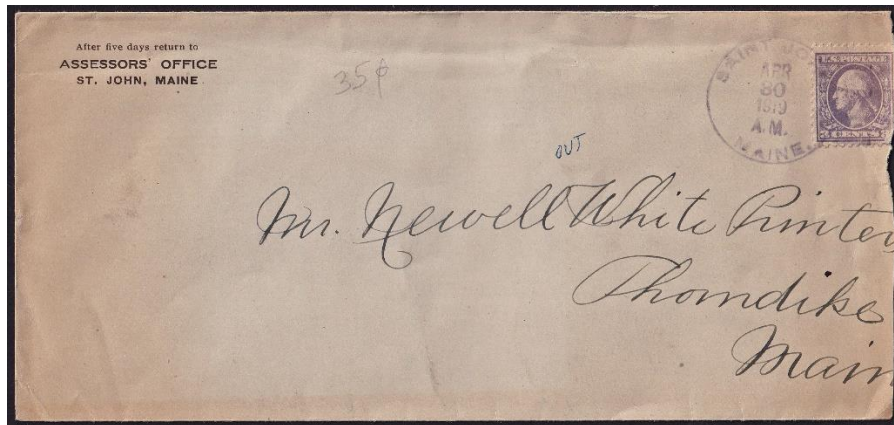 After five days return to
ASSESSORS' OFFICE
ST. JOHN, MAINE
35¢
SAINT JO
APR
30
1919
A.M.
MAINE.
U.S. POSTAGE
3 CENTS 3
OUT
Mr. Newell White Printer
Thorndike
Main